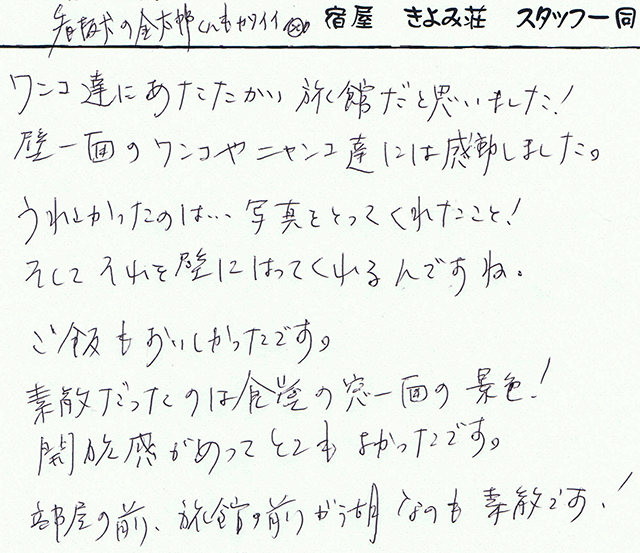 看板犬の金太郎くんもカワイイ 宿屋 きよみ荘 スタッフ一同
ワンコ達にあたたかい旅館だと思いました!
壁一面のワンコやニャンコ達には感動しました。
うれしかったのは…写真をとってくれたこと!
そしてそれを壁にはってくれるんですね。
ご飯もおいしかったです。
素敵だったのは食堂の窓一面の景色!
開放感があってとてもよかったです。
部屋の前、旅館の前が湖なのも素敵です!